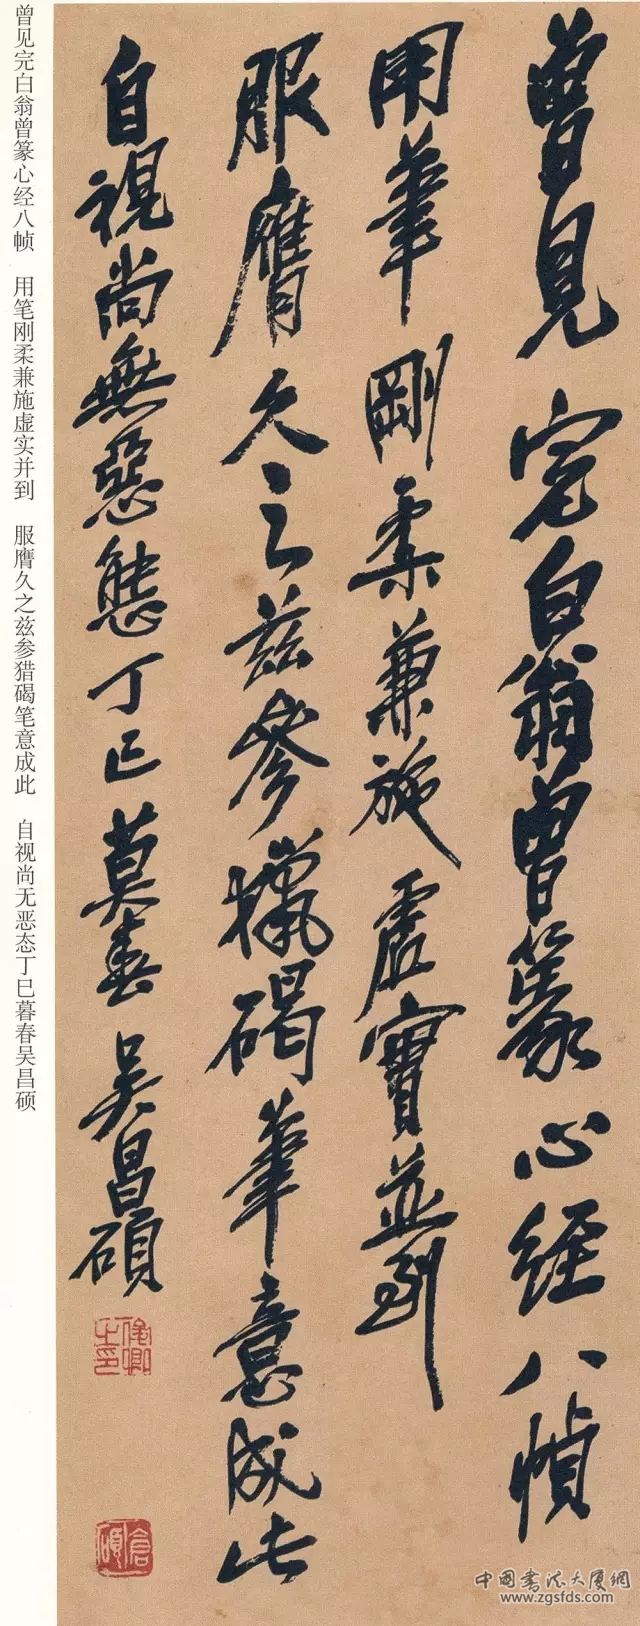 曾見完白翁曾篆心經八幀
用筆剛柔兼施虛實並到
服膺久之茲參獵碣筆意成此
自視尚無惡態丁巳莫春吳昌碩
俊卿之印
倉碩
曾见完白翁曾篆心经八帧 用笔刚柔兼施虚实并到 服膺久之兹参猎碣笔意成此 自视尚无恶态丁巳暮春吴昌硕
中国书法大厦網
www.zgsfds.com